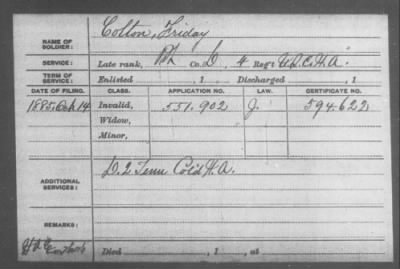 NAME OF SOLDIER: Colton, Friday
SERVICE: Late rank, Pvt Co. D, 4 Regt U.S.C.H.A.
TERM OF SERVICE: Enlisted , 1 Discharged , 1
DATE OF FILING. CLASS. APPLICATION NO. LAW. CERTIFICATE NO.
1885, Oct 14 Invalid, 551.902 J. 594.622
Widow,
Minor,
ADDITIONAL SERVICES: D. 2 Tenn Col'd H.A.
REMARKS:
Died , 1 , at